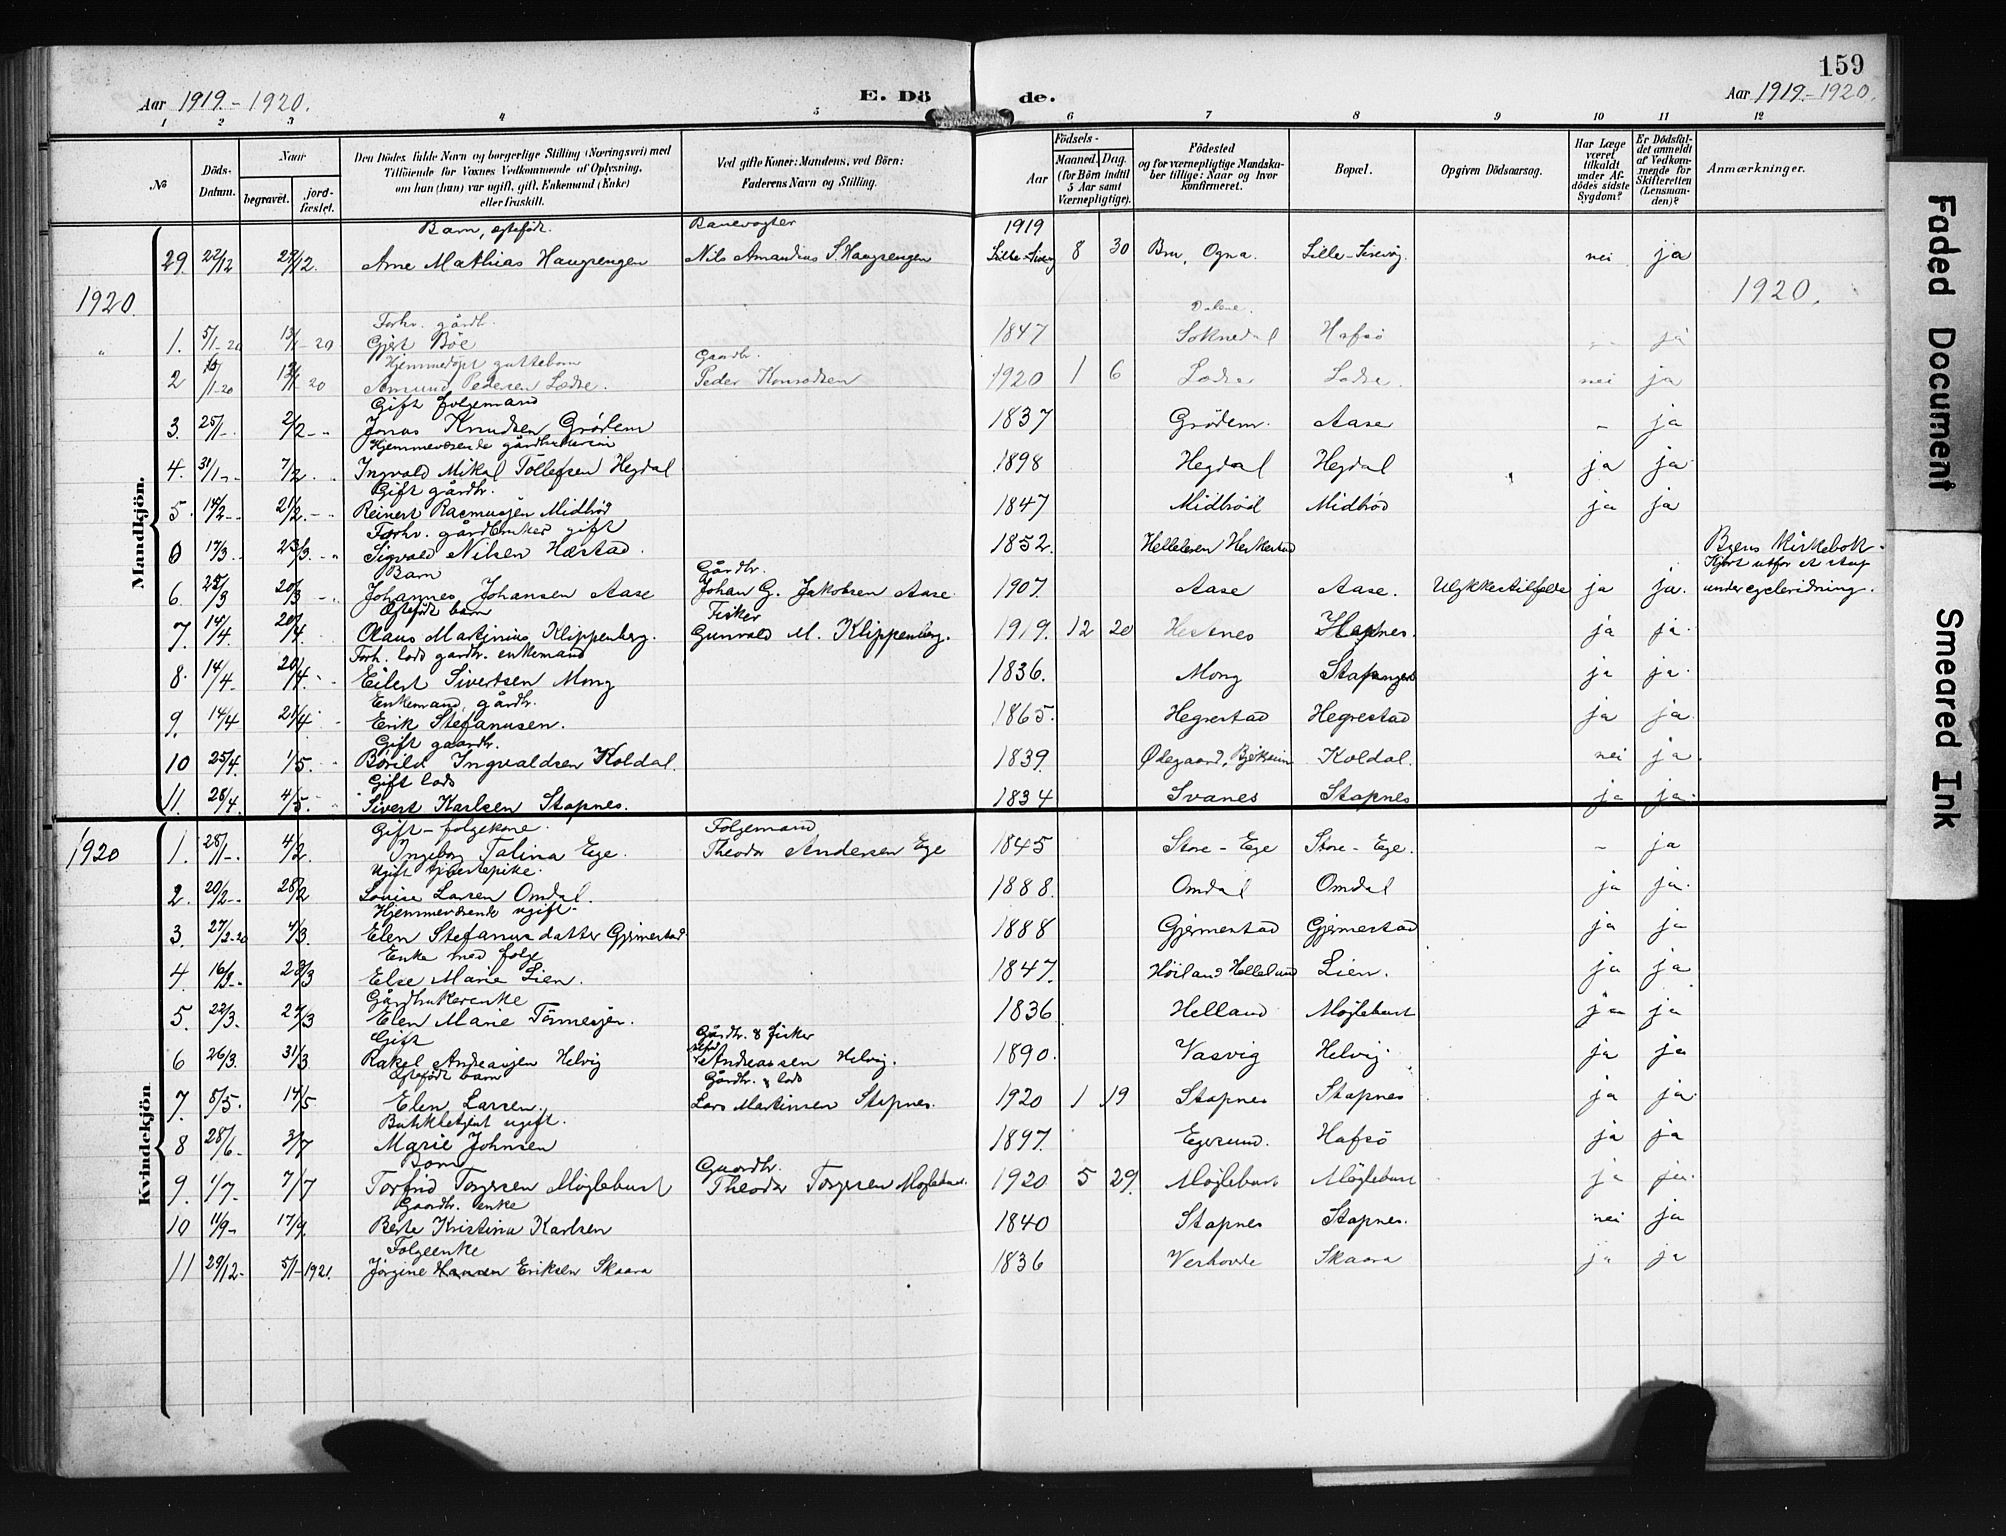 159
Aar 1919.-1920. E. Dö de. Aar 1919.-1920.
1 2 3 4 5 6 7 8 9 10 11 12
No Döds-Datum. Naar begravet. jord-fæstet. Den Dödes fulde Navn og borgerlige Stilling (Næringsvei) med Tilföiende for Voxnes Vedkommende af Oplysning, om han (hun) var ugift, gift, Enkemand (Enke) eller fraskilt. Ved gifte Koner: Mandens, ved Börn: Faderens Navn og Stilling. Födsels- Aar Maaned. Dag. (for Börn indtil 5 Aar samt Værnepligtige). Födested og for værnepligtige Mandska-ber tillige: Naar og hvor konfirmeret. Bopæl. Opgiven Dödsaarsag. Har Læge været tilkaldt under Af-dödes sidste Sygdom? Er Dödsfal-det anmeldt af Vedkom-mende for Skifteretten (Lensman-den)? Anmærkninger.
Mandkjön.
Barn, ægtefødt. Banevogter 1919
29. 22/12 27/12. Arne Mathias Haugrengen Nils Amandius S. Haugrengen Lille-Sirevåg 8 30 Bru, Ogna. Lille-Sirevåg. nei ja
1920 1920.
Forhv. gårdbr. Dalene.
1. 5/1-20 13/1-20 Gjert Böe 1847 Soknedal Hafsö - ja
Hjemmedöpt guttebarn Gaardbr.
2 /1-20 20 Amund Pedersen Lædre. Peder Konradsen 1920 1 6 Lædre Lædre. nei ja
Gift folgemand
3. 25/1-. 2/2-- Jonas Knudsen Grödem 1837 Grödem. Aase - ja
Hjemmeværende gårdbrukerson
4. 31/1-- 7/2. Ingvald Mikal Tollefsen Hegdal 1898 Hegdal Hegdal ja ja
Gift gårdbr.
5. 14/2-- 21/2.-- Reinert Rasmussen Midbröd 1847 Midbröd Midbröd ja ja
Forhv. gårdbruker gift
0 17/3-. 23/3.-. Sigvald Nilsen Hæstad. 1852. Helleleren Heskestad Byens Kirkebok.
Barn Gårdbr. Kjørt utfor et stup
6. 25/3 Johannes Johansen Aase Johan G. Jakobsen Aase. 1907. Aase Aase. Ulykkestilfelde ja ja. under cycleridning.
Ægtefödt barn Fisker
7. 14/4. 20/4. Olaus Martinius Klippenberg. Gunvald M. Klippenberg. 1919. 12 20 Hestnes Stapnes. ja ja.
Forh. lods gardbr. enkemand
8. 14/4. 20/4. Eilert Sivertsen Mong 1836. Mong Stapnes ja ja.
Enkemand, gårdbr.
9. 14/4 21/4. Erik Stefanusen. 1865. Hegrestad Hegrestad ja ja
Gift gaardbr.
10 25/4. 1/5. Börild Ingvaldsen Koldal. 1839. Ødegaard, Bjerkreim Koldal. nei ja
Gift lods
11. 28/4. 4/5. Sivert Karlsen Stapnes. 1834 Svanes Stapnes ja ja.
Kvindekjön
Gift-folgekone. Folgemand
1920 1. 28/1-. 4/2. Ingeborg Talina Ege. Theodor Andersen Ege 1845 Store-Ege Store-Ege. - ja
Ugift tjenestepike.
2. 20/2-- 28/2 Lovise Larsen Omdal. 1888. Omdal Omdal ja ja.
Hjemmeværende ugift-
3. 27/2-20 4/3. Elen Stefanusdatter Gjermestad 1888 Gjermestad Gjermestad ja ja
Enke med folge
4 16/3-. 23/3 Else Marie Lien. 1847. Höiland Helleland Lien. ja ja
Gårdbrukerenke
5. 22/3. 27/3 Elen Marie Tönnesen. 1836 Helland Mögleburt ja ja
Gift Gårdbr. & fisker
6 26/3. 31/3 Rakel Andreassen Helvig Andreassen Helvig. 1890. Vasvig Helvig. ja ja
Ægtefödt barn Gårdbr. & lods
7. 8/5. 14/5 Elen Larsen. Lars Martinsen Stapnes. 1920 1 19 Stapnes Stapnes ja ja.
Butikbetjent ugift.
8 28/6. 3/7 Marie Johnsen 1897. Egersund. Hafsö ja ja
Barn Gaardbr.
9. 1/7-. 7/7 Torfrid Torgersen Mögleburt Theodor Torgersen Mögleburt. 1920 5 29. Mögleburt Mögleburt ja ja.
Gaardbr. enke
10 11/9- 17/9. Berte Kristina Karlsen 1840 Stapnes Stapnes. nei ja
Folgeenke
11 29/12- 5/1-1921. Jörgine Hansen Eriksen Skaara 1836 Verhovde Skaara ja ja
Faded Document
Smeared Ink